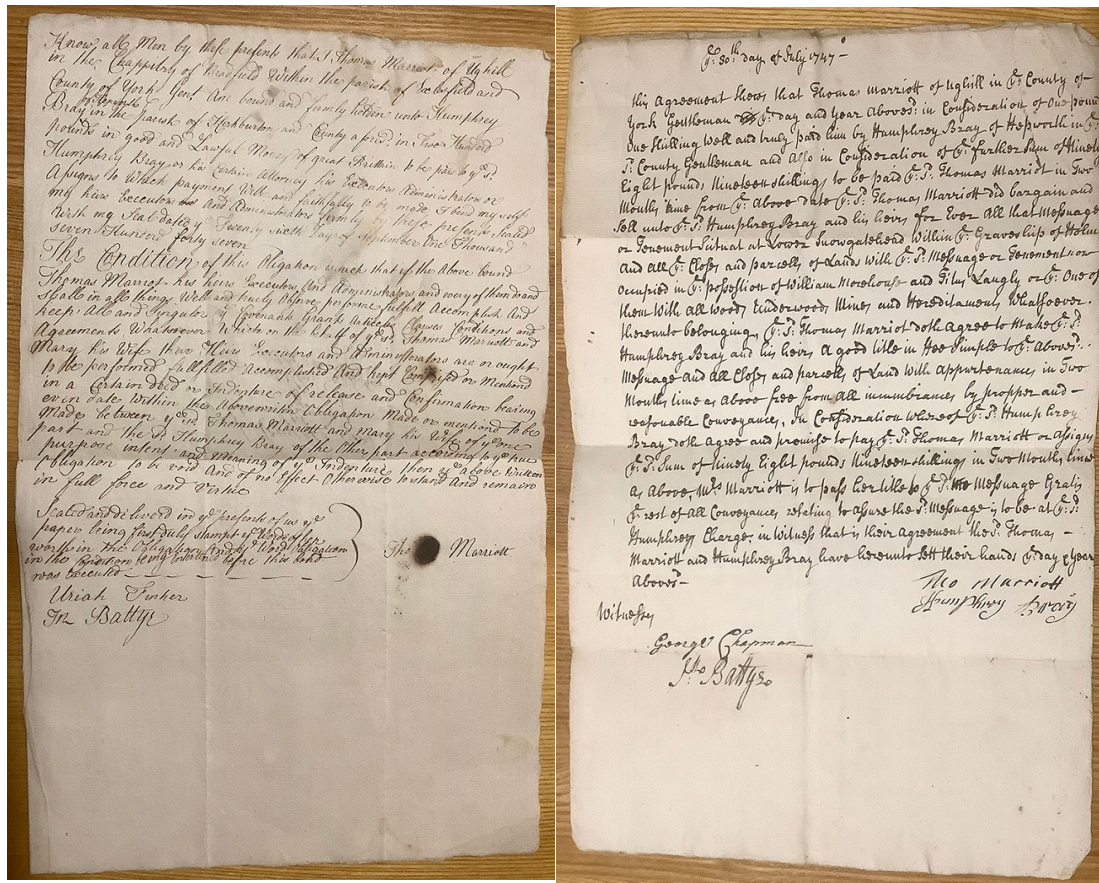 Know all Men by these presents that I Thomas Marriott of Ughill
in the Chappelry of Bradfield Within the parish of Ecclesfield and
County of York Gent. Are bound and firmly holden unto Humphrey
of Hepworth
Bray in the parish of Kirkburton and County afores.d in Two Hundred
pounds in good and Lawful Money of great Brittain to be paid to y.e s.d
Humphrey Bray or his Certain Attorney his Executors Administrators or
Assigns to Which payment Well and faithfully to be made I bind my self
my heirs Executors and Administrators firmly by these presents Sealed
With my Seal dated Twenty sixth day of September One Thousand
seven Hundred forty seven
The Condition of this Obligation is such that if the Above bound
Thomas Marriot his heirs Executors And Administrators and every of them do and
shall in all things Well and truely Observe performe fulfill Accomplish And
keep All and Singular Covenants Grants Articles Clauses Conditions and
Agreements Whatsoever Which on the behalf of y.e s.d Thomas Marriott and
Mary his Wife their Heirs Executors and Administrators are or ought
to be performed fullfilled Accomplished And kept Comprised or Mentiond
in a Certain deed or Indenture of release and Confirmation bearing
even date Within the Abovewritten Obligation Made or mentiond to be
Made between y.e s.d Thomas Marriott and Mary his Wife of y.e one
part and the s.d Humphrey Bray of the Other part according to y.e true
purpose intent and Meaning of y.e s.d Indenture then y.e above Written
Obligation to be void And of no Effect Otherwise to stand And remain
in full force and Virtue
Sealed and delivered in y.e presents of us y.e
paper being first duly stampt y.e Words of Hep
worth in the Obligation And y.e Word Obligation
in the Condition being interlined before this bond
was Executed
Tho Marriott
Uriah Tinker
Jn.o Battye
Y.e 30.th day of July 1747
this Agreement shews that Thomas Marriott of Ughill in y.e County of
York Gentleman y.e day and Year Aboves.d in Consideration of One pound
One shilling Well and truly paid him by Humphrey Bray of Hepworth in y.e
s.d County Gentleman and Also in Consideration of y.e further Sum of Ninety
Eight pounds Nineteen shillings to be paid y.e s.d Thomas Marriot in Two
Months time from y.e Above date y.e s.d Thomas Marriott did bargain and
Sell unto y.e s.d Humphrey Bray and his heirs for Ever All that Messuage
or Tenement Situat at Lower Snowgatehead Within y.e Graveship of Holm
And All y.e Closes and parcells of Lands with y.e s.d Messuage or Tenement now
Occupied in y.e possession of William Morehouse and Titus Langly or y.e One of
them With All Woods Underwoods Mines and Hereditaments Whatsoever
thereunto belonging y.e s.d Thomas Marriot doth Agree to Make y.e s.d
Humphrey Bray and his heirs A good title in Fee Simple to y.e Aboves.d
Messuage and All Closes and parcells of Land With Appurtenances in Two
Months time as Above free from All incumbrances by propper and
reasonable Conveyances, In Consideration whereof y.e s.d Humphrey
Bray doth Agree and promise to pay y.e s.d Thomas Marriott or Assigns
y.e s.d Sum of Ninety Eight pounds Nineteen shillings in Two Months time
as Above, M.rs Marriott is to pass her title to y.e s.d Messuage Gratis
y.e rest of All Conveyances relating to Assure the s.d Messuage is to be at y.e s.d
Humphreys Charge, in Witness that is their Agreement the s.d Thomas
Marriott and Humphrey Bray have hereunto Sett their hands y.e day & Year
Aboves.d
Tho Marriott
Humphrey Bray
Witnesses
George Chapman
Jn.o Battye